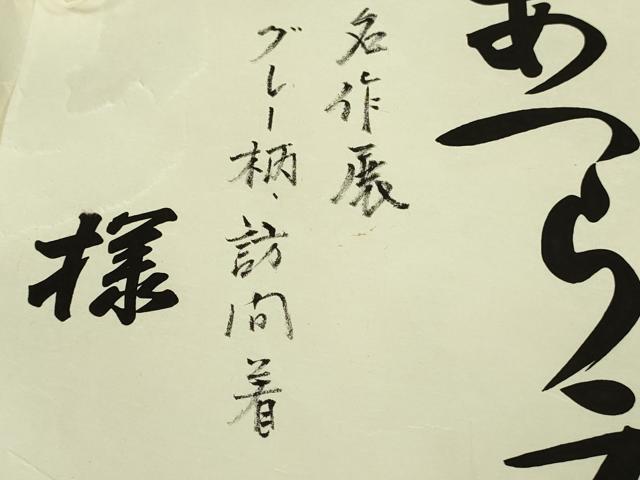 あつらえ
名作展
グレー柄、訪問着
様